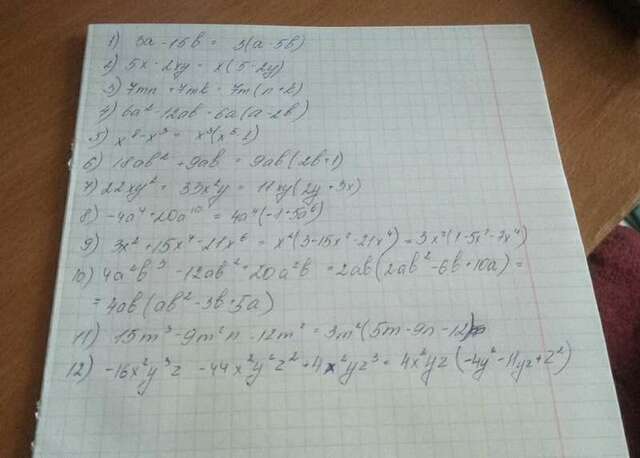 1) 3a - 15b = 3(a - 5b)
2) 5x - 2xy = x(5 - 2y)
3) 7mn + 7mk = 7m(n + k)
4) 6a² - 12ab = 6a(a - 2b)
5) x⁸ - x³ = x³(x⁵ - 1)
6) 18ab² + 9ab = 9ab(2b + 1)
7) 22xy² = 33x²y = 11xy(2y + 3x)
8) -4a⁴ + 20a¹⁰ = 4a⁴(-1 + 5a⁶)
9) 3x² + 15x⁴ - 21x⁶ = x²(3 - 15x² - 21x⁴) = 3x²(1 - 5x² - 7x⁴)
10) 4a²b³ - 12ab² + 20a²b = 2ab(2ab² - 6b + 10a) =
= 4ab(ab² - 3b + 5a)
11) 15m³ - 9m²n - 12m² = 3m²(5m - 9n - 12)
12) -16x²y³z - 44x²y²z² + 4x²yz³ = 4x²yz(-4y² - 11yz + z²)